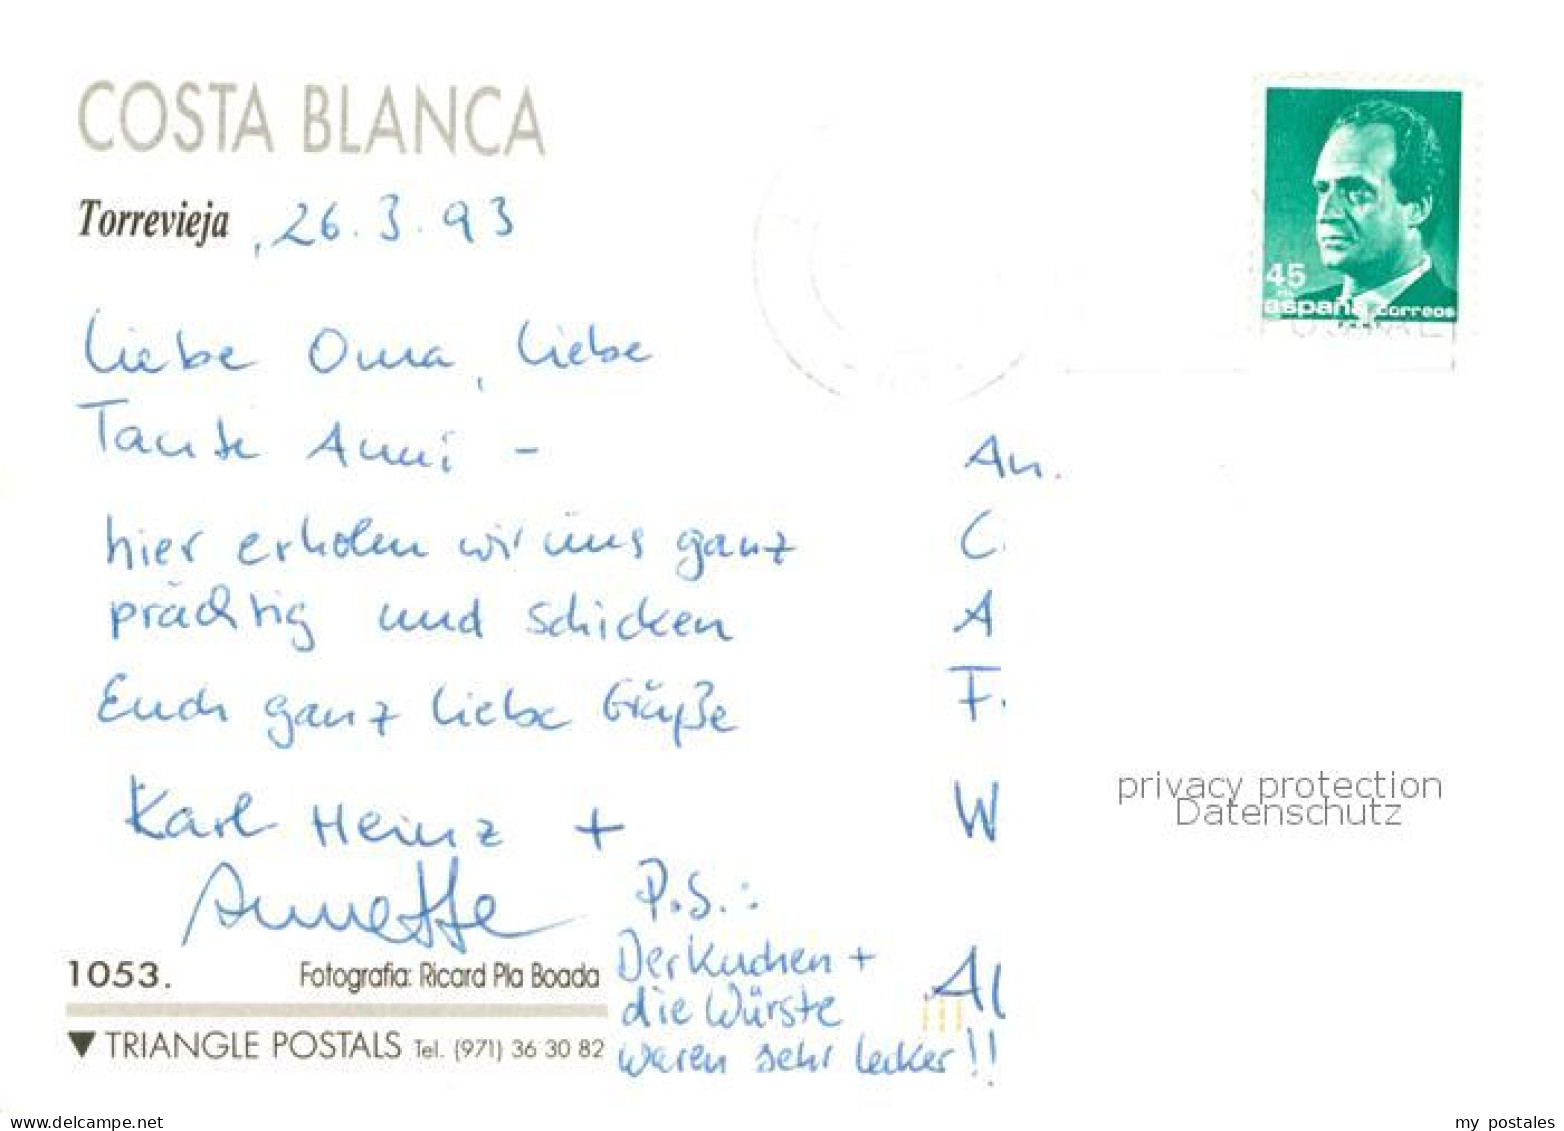 COSTA BLANCA
Torrevieja, 26.3.93
Liebe Oma, liebe
Tante Anni -
hier erholen wir uns ganz
prächtig und schicken
Euch ganz liebe Grüße
Karl Heinz +
Annette
P.S.:
Der Kuchen +
die Würste
waren sehr lecker!!
1053.
Fotografia: Ricard Pla Boada
TRIANGLE POSTALS Tel. (971) 36 30 82
45
españa correos
An.
C.
A
F.
W
A
privacy protection
Datenschutz
www.delcampe.net
my_postales